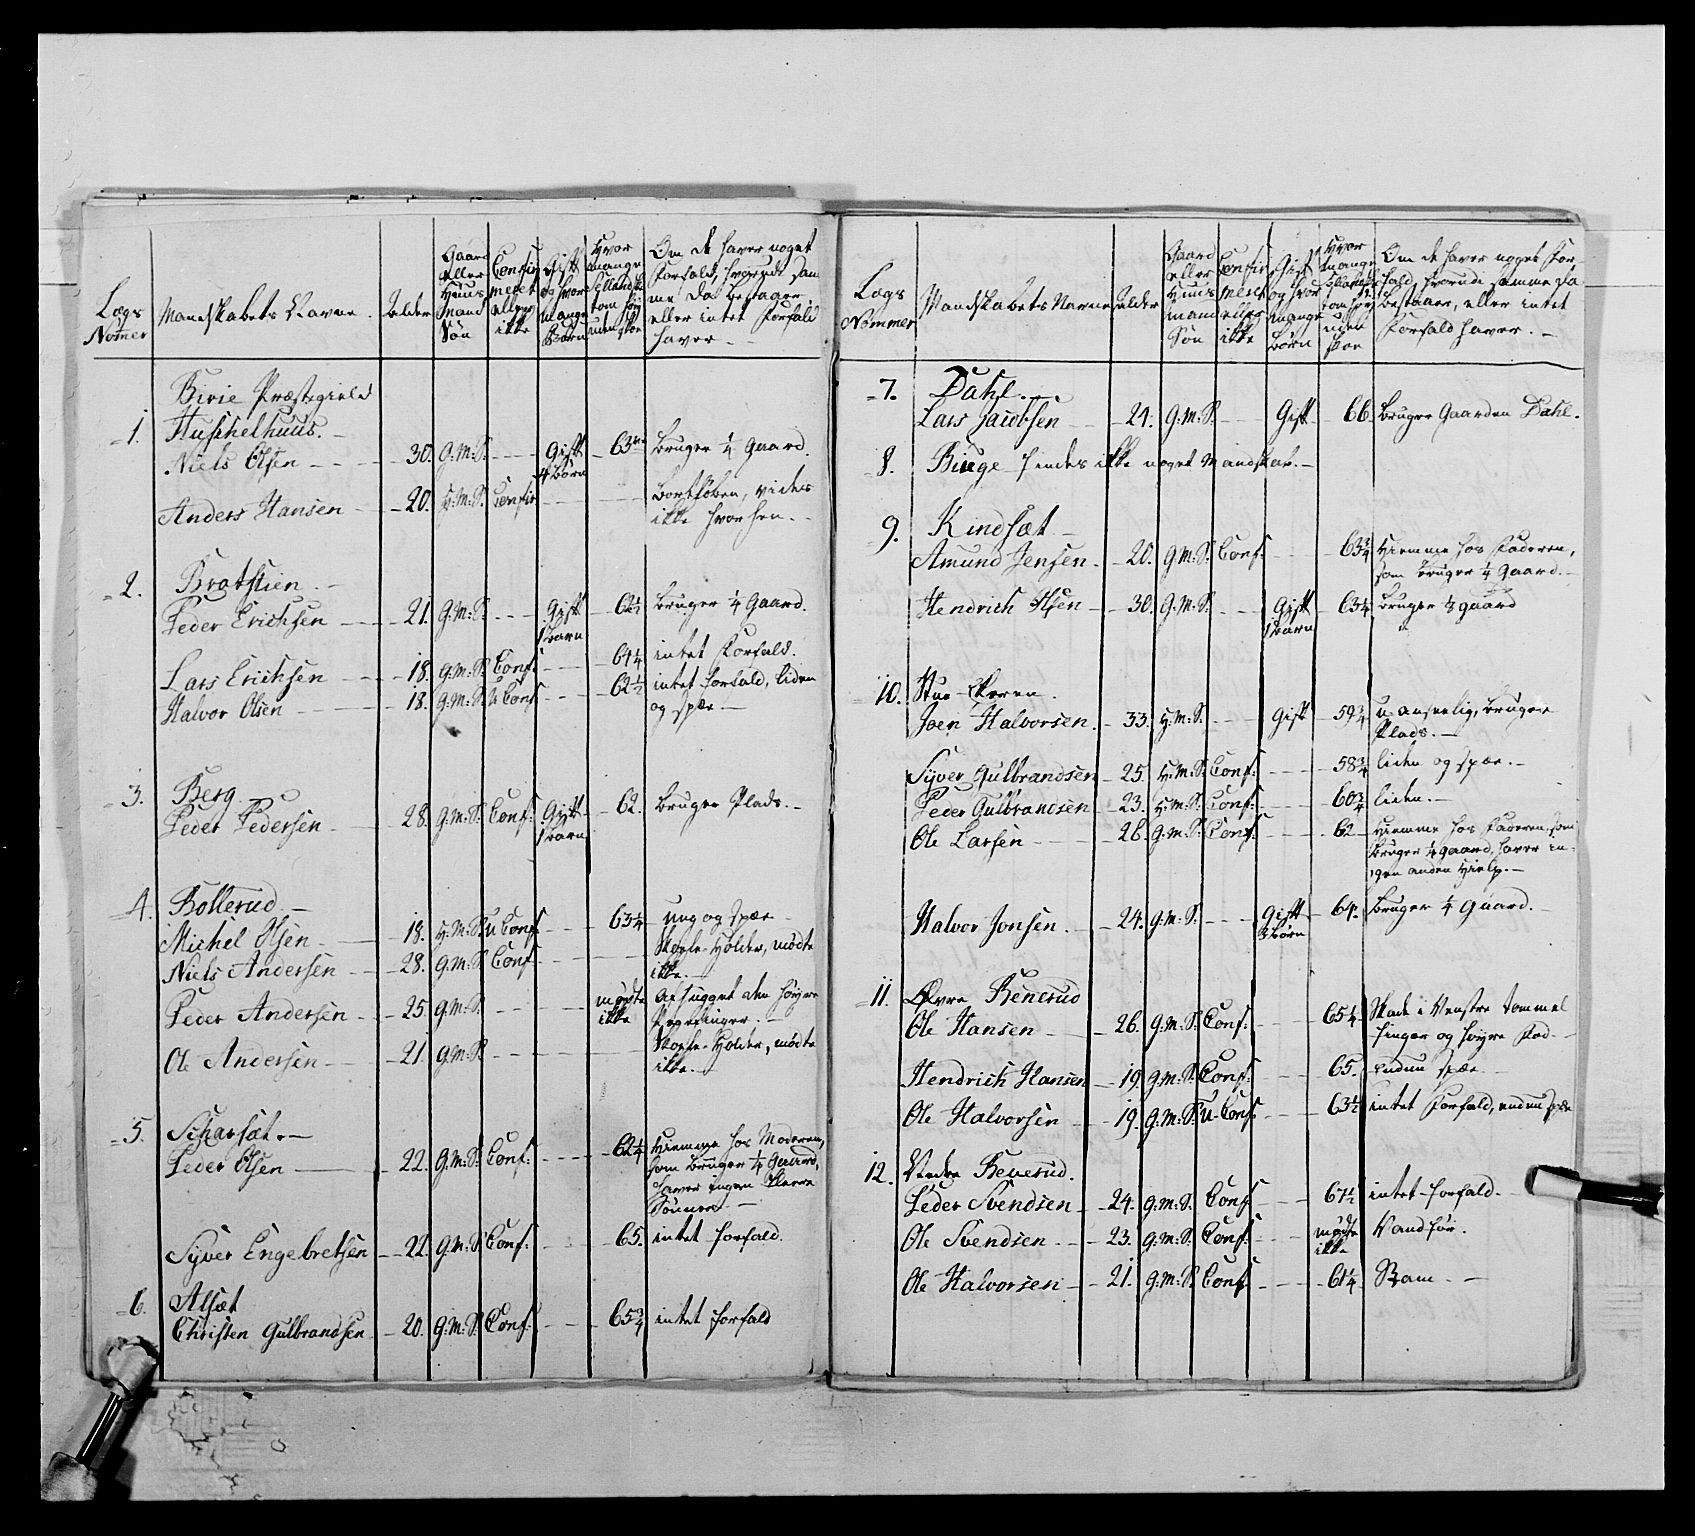 Lægs Nomer
Mandskabets Navne.
Alder
Gaard eller Huus Mand Søn
Confirmeret eller ikke
Gift og hvor mange Børn
Hvor mange Sellandske tom høi uden skoe
Om de haver noget Forfald, hvorudi samme da bestaaer eller intet Forfald haver.
Birie Præstegield
1. Huschelhuus.
Niels Olsen 30. G.M.S. Gift 4 børn 63 bruger 1/4 Gaard.
Anders Hansen 20. H.M.S. Confir bortløben, vides
ikke hvor hen.
2. Bratstien
Peder Erichsen 21. G.M.S. Gift 1 barn 62 1/2 bruger 1/4 Gaard.
Lars Erichsen 18. G.M.S. Conf: 64 1/4 intet Forfald.
Halvor Olsen 18. G.M.S. U Conf: 62 1/2 intet forfald, liden
og spæ.
3. Berg
Peder Pedersen 28. G.M.S. Conf: Gift 1 barn 62. bruger Plads.
4. Bollerud
Michel Olsen 18. H.M.S. U Conf: 63 1/4 ung og spæ
Niels Andersen 28. G.M.S. Conf: Holder, mødte
ikke.
Peder Andersen 25. G.M.S. mødte ikke Afhugget den høyre
Pegefinger.
Ole Andersen 21. G.M.S. Holder, mødte
ikke.
5. Scharsæt.
Peder Olsen 22. G.M.S. Conf: 62 1/4 Hiemme hos Moderen,
som bruger 1/4 Gaard,
haver ingen flere
Sønner
Syver Engebretsen 22. G.M.S. Conf: 65. intet forfald.
6. Alsæt
Christen Gulbrandsen 20. G.M.S. Conf: 65 3/4 intet forfald
Lægs Nommer
Mandskabets Navne
Alder
Gaard eller Huus mand Søn
Confirmeret eller ikke
Gift og hvor mange børn
Hvor mange Sellandske tom høy uden skoe
Om de haver noget Forfald, hvorudi samme da bestaaer, eller intet Forfald haver.
7. Dahl.
Lars Jacobsen 24. G.M.S. Gift 66. bruger Gaarden Dahl.
8. Biuge findes ikke noget Mandskab.
9. Kindsæt
Amund Jensen 20. G.M.S. Conf: 63 3/4 Hiemme hos Faderen,
som bruger 1/4 Gaard.
Hendrich Olsen 30. G.M.S. Gift 1 barn 63 1/4 bruger 1/3 gaard
10. Stue-Skeren.
Joen Halvorsen. 33. H.M.S. Gift 59 3/4 u anseelig, bruger
Plads.
Syver Gulbrandsen 25. H.M.S. Conf: 58 3/4 liden og spæ.
Peder Gulbrandsen 23. H.M.S. Conf: 60 3/4 liden.
Ole Larsen 26. G.M.S. Conf: 62 Hiemme hos Faderen, som
bruger 1/4 gaard, haver in-
gen anden Hielp.
Halvor Jonsen 24. G.M.S. Gift 3 børn 64. bruger 1/4 Gaard.
11. Øvre Benerud
Ole Hansen 26. G.M.S. Conf: 65 1/4 Skade i Venstre tommel
finger og høyre Fod.
Hendrich Hansen 19. G.M.S. Conf: 65. endnu spæ
Ole Halvorsen 19. G.M.S. U Conf: 63 1/2 intet Forfald, endnu spæ
12. Nedre Beverud.
Peder Svendsen 24. G.M.S. Conf: 67 1/2 intet forfald.
Ole Svendsen 23. G.M.S. Conf: mødte ikke Vandfør.
Ole Halvorsen 21. G.M.S. Conf: 61 1/4